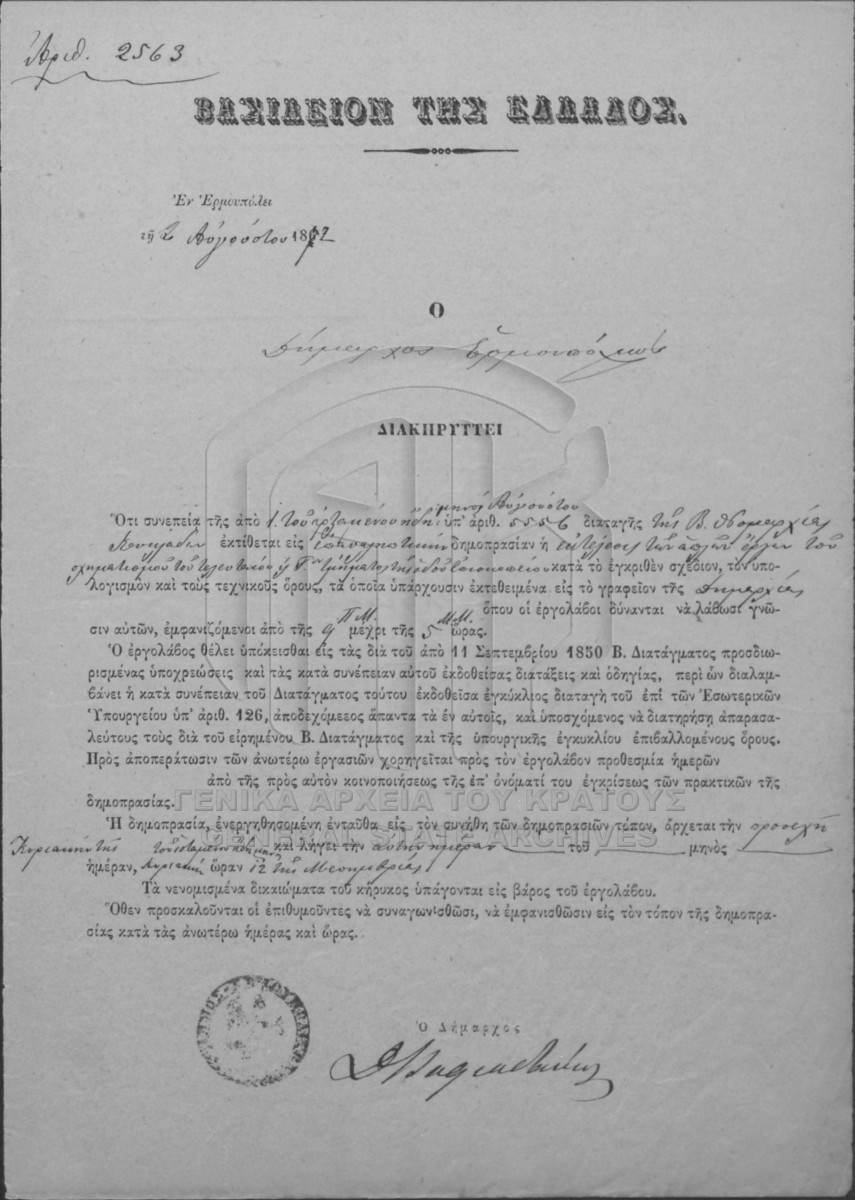 Ἀριθ. 2563
ΒΑΣΙΛΕΙΟΝ ΤΗΣ ΕΛΛΑΔΟΣ.
Ἐν Ἑρμουπόλει
τῇ 2 Αὐγούστου 1872
Ο
Δήμαρχος Ἑρμουπόλεως
ΔΙΑΚΗΡΥΤΤΕΙ
μηνὸς Αὐγούστου
Ὅτι συνεπείᾳ τῆς ἀπὸ 1. τοῦ ὑπ' ἀριθ. 5556 διαταγῆς τῆς Β. Νομαρχίας
Κυκλάδων ἐκτίθεται εἰς δημοπρασίαν ἡ ἐκτέλεσις τῶν ἔργων τοῦ
σχηματισμοῦ τοῦ τελευταίου τμήματος τῆς ὁδοῦ κατὰ τὸ ἐγκριθὲν σχέδιον, τὸν ὑπο-
λογισμὸν καὶ τοὺς τεχνικοὺς ὅρους, τὰ ὁποῖα ὑπάρχουσιν ἐκτεθειμένα εἰς τὸ γραφεῖον τῆς Δημαρχίας
ὅπου οἱ ἐργολάβοι δύνανται νὰ λάβωσι γνῶ-
σιν αὐτῶν, ἐμφανιζόμενοι ἀπὸ τῆς 9 Π.Μ. μέχρι τῆς 5 Μ.Μ. ὥρας.
Ὁ ἐργολάβος θέλει ὑπόκεισθαι εἰς τὰς διὰ τοῦ ἀπὸ 11 Σεπτεμβρίου 1850 Β. Διατάγματος προσδιω-
ρισμένας ὑποχρεώσεις καὶ τὰς κατὰ συνέπειαν αὐτοῦ ἐκδοθείσας διατάξεις καὶ ὁδηγίας, περὶ ὧν διαλαμ-
βάνει ἡ κατὰ συνέπειαν τοῦ Διατάγματος τούτου ἐκδοθεῖσα ἐγκύκλιος διαταγὴ τοῦ ἐπὶ τῶν Ἐσωτερικῶν
Ὑπουργείου ὑπ' ἀριθ. 126, ἀποδεχόμεεος ἅπαντα τὰ ἐν αὐτοῖς, καὶ ὑποσχόμενος νὰ διατηρήσῃ ἀπαρασα-
λεύτους τοὺς διὰ τοῦ εἰρημένου Β. Διατάγματος καὶ τῆς ὑπουργικῆς ἐγκυκλίου ἐπιβαλλομένους ὅρους.
Πρὸς ἀποπεράτωσιν τῶν ἀνωτέρω ἐργασιῶν χορηγεῖται πρὸς τὸν ἐργολάβον προθεσμία ἡμερῶν
ἀπὸ τῆς πρὸς αὐτὸν κοινοποιήσεως τῆς ἐπ' ὀνόματί του ἐγκρίσεως τῶν πρακτικῶν τῆς
δημοπρασίας.
ΓΕΝΙΚΑ ΑΡΧΕΙΑ ΤΟΥ ΚΡΑΤΟΥΣ
GENERAL STATE ARCHIVES
Ἡ δημοπρασία, ἐνεργηθησομένη ἐνταῦθα εἰς τὸν συνήθη τῶν δημοπρασιῶν τόπον, ἄρχεται τὴν προσεχῆ
Κυριακὴν τῆς καὶ λήγει τὴν αὐτὴν ἡμέραν τοῦ μηνὸς
ἡμέραν, Κυριακὴ ὥραν 12 τῆς Μεσημβρίας
Τὰ νενομισμένα δικαιώματα τοῦ κήρυκος ὑπάγονται εἰς βάρος τοῦ ἐργολάβου.
Ὅθεν προσκαλοῦνται οἱ ἐπιθυμοῦντες νὰ συναγωνισθῶσι, νὰ ἐμφανισθῶσιν εἰς τὸν τόπον τῆς δημοπρα-
σίας κατὰ τὰς ἀνωτέρω ἡμέρας καὶ ὥρας.
Ὁ Δήμαρχος